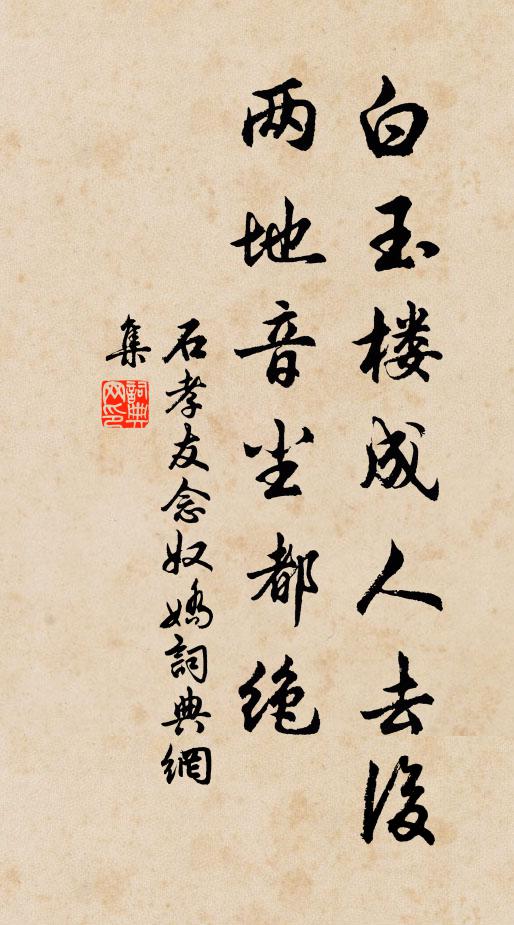 白玉楼成人去後
两地音尘都绝
石孝友念奴嬌詞典網
集
詞典网印